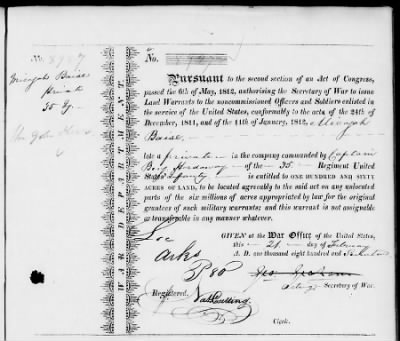 No.
No.
Pursuant to the second section of an Act of Congress,
passed the 6th of May, 1812, authorising the Secretary of War to issue
Land Warrants to the noncommissioned Officers and Soldiers enlisted
in the service of the United States, conformably to the acts of the 24th of
December, 1811, and of the 11th of January, 1812,
late a private in the company commanded by Captain
of the 35 Regiment United
States Infantry is entitled to ONE HUNDRED AND SIXTY
ACRES OF LAND, to be located agreeably to the said act on any unlocated
parts of the six millions of acres appropriated by law for the original
grantees of such military warrants; and this warrant is not assignable
or transferable in any manner whatever.
GIVEN at the War Office of the United States,
this 21 day of February
A. D. one thousand eight hundred and
Geo Graham
Acting Secretary of War.
Registered,
Clerk.
WAR DEPARTMENT.
private
35
Loc
Arks
P 80